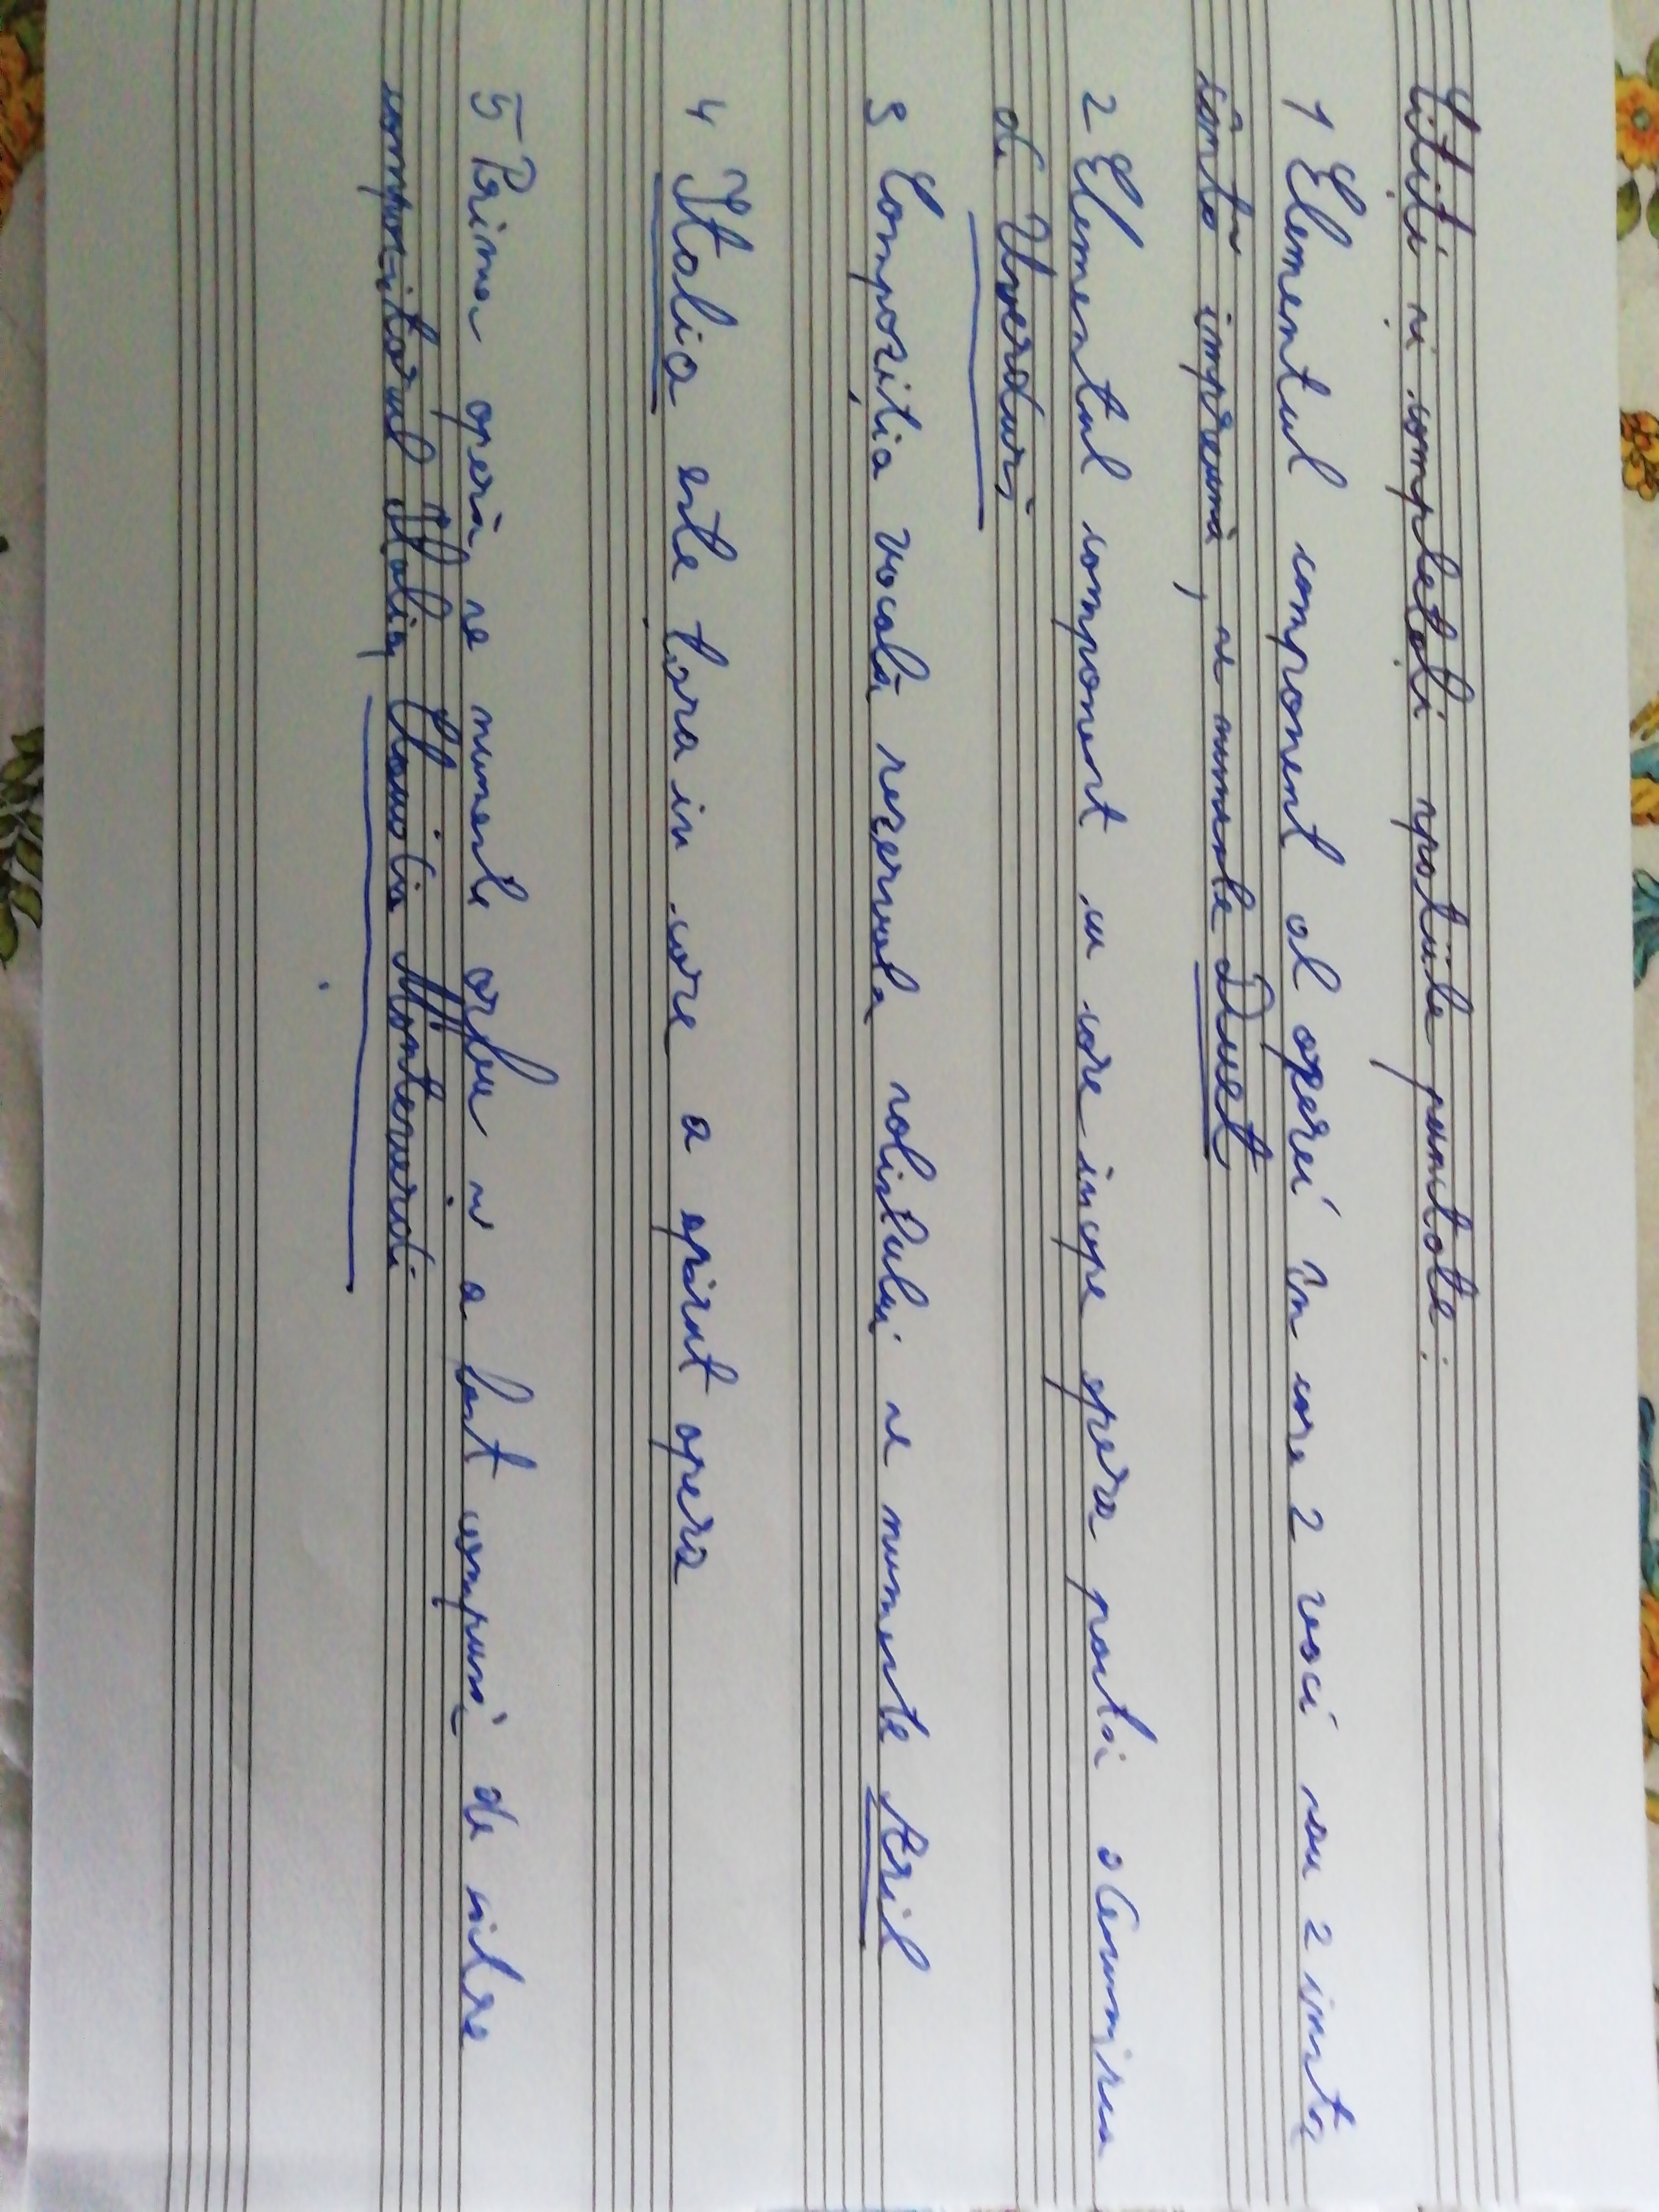 Citiți și completați spațiile punctate:
1 Elementul component al operei în care 2 voci sau 2 cântă
cântă împreună, se numește Duet
2 Elementul component cu care începe opera poartă denumirea
de Uverturi
3 Compoziția vocală rezervată solistului se numește Aril
4 Italia este țara în care a apărut opera
5 Prima operă se numește Orfeu și a fost compusă de către
compozitorul Italian Claudia Monteverdi